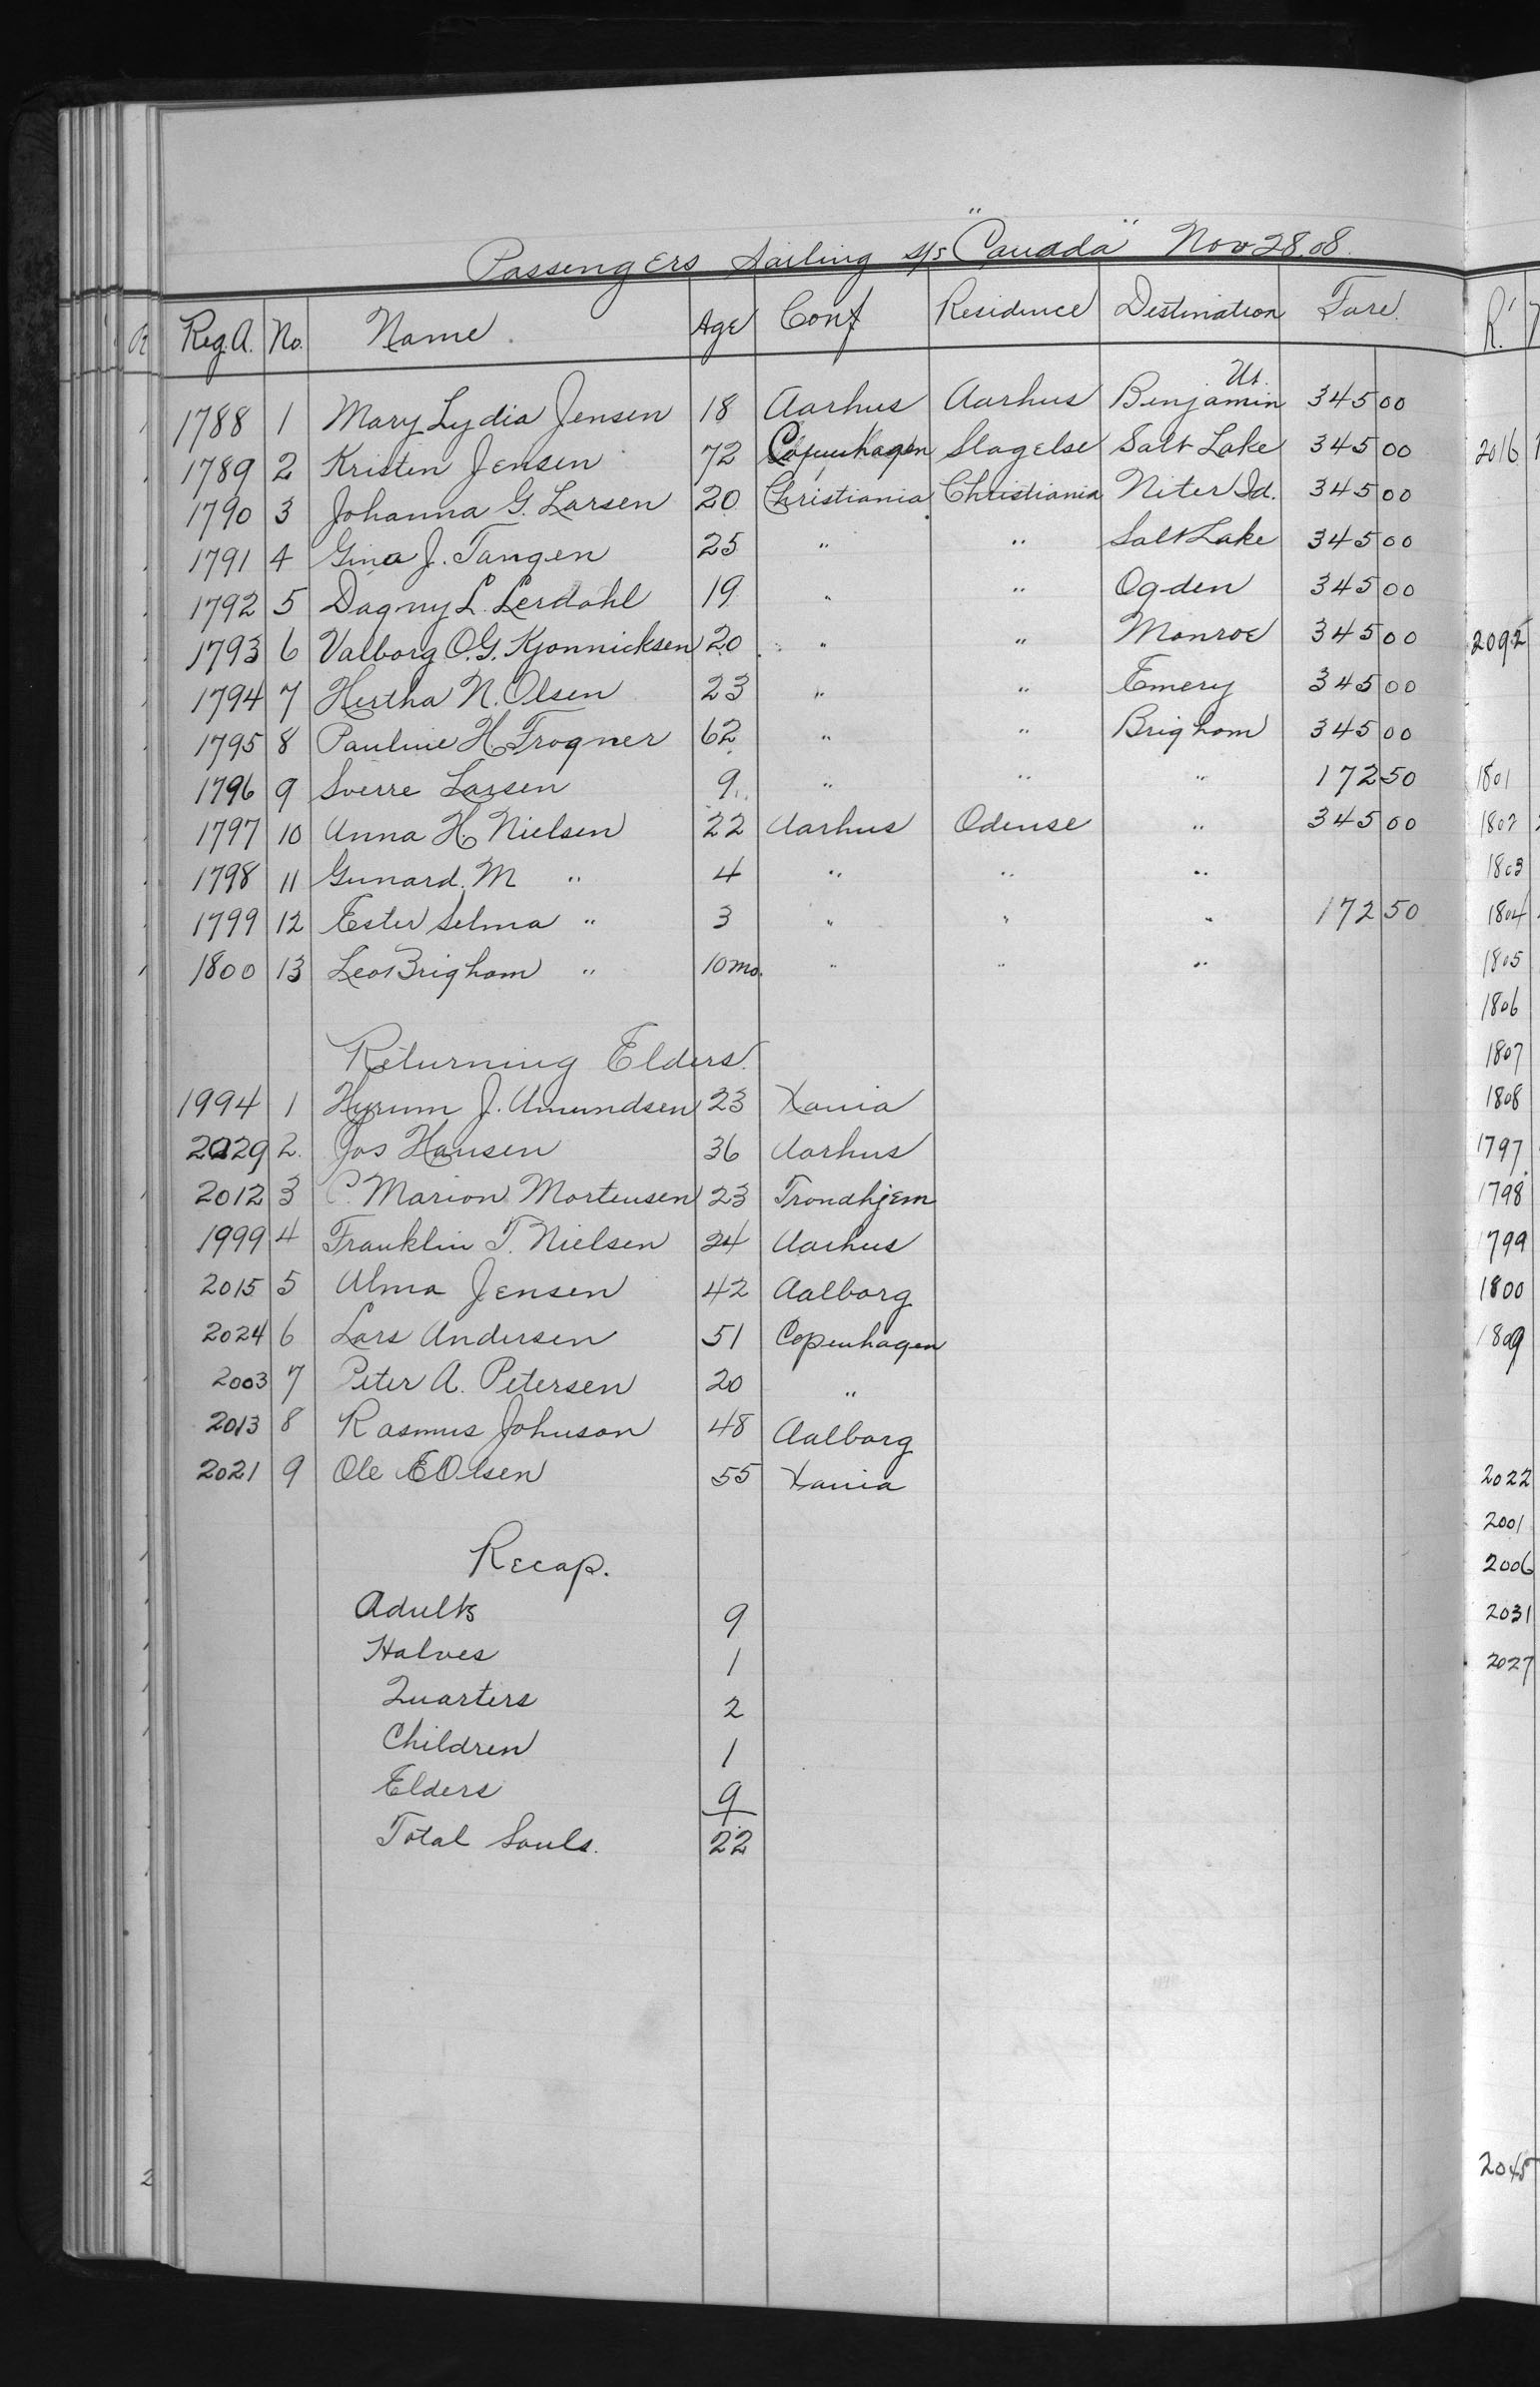 Passengers Sailing S/S "Canada" Nov 28, 08.
Reg. A. No. Name. Age Conf Residence Destination Fare
1788 1 Mary Lydia Jensen 18 Aarhus Aarhus Benjamin Ut. 345 00
1789 2 Kristen Jensen 72 Copenhagen Slagelse Salt Lake 345 00
1790 3 Johanna G. Larsen 20 Christiania Christiania Niter Id. 345 00
1791 4 Gina J. Tangen 25 " " Salt Lake 345 00
1792 5 Dagny L. Lerdahl 19 " " Ogden 345 00
1793 6 Valborg O.G. Kjonnicksen 20 " " Monroe 345 00
1794 7 Hertha N. Olsen 23 " " Emery 345 00
1795 8 Pauline H. Frogner 62 " " Brigham 345 00
1796 9 Sverre Larsen 9 " " " 172 50
1797 10 Anna H. Nielsen 22 Aarhus Odense " 345 00
1798 11 Gunard. M " 4 " " "
1799 12 Ester Selma " 3 " " " 172 50
1800 13 Leo Brigham " 10 mo. " " "
Returning Elders.
1994 1 Hyrum J. Amundsen 23 Xania
2029 2. Jos Hansen 36 Aarhus
2012 3 C. Marion Mortensen 23 Trondhjem
1999 4 Franklin T. Nielsen 24 Aarhus
2015 5 Alma Jensen 42 Aalborg
2024 6 Lars Andersen 51 Copenhagen
2003 7 Peter A. Petersen 20 "
2013 8 Rasmus Johnson 48 Aalborg
2021 9 Ole E Olsen 55 Xania
Recap.
Adults 9
Halves 1
Quarters 2
Children 1
Elders 9
Total Souls. 22
R.
2016
2092
1801
1802
1803
1804
1805
1806
1807
1808
1797
1798
1799
1800
1809
2022
2001
2006
2031
2027
2045